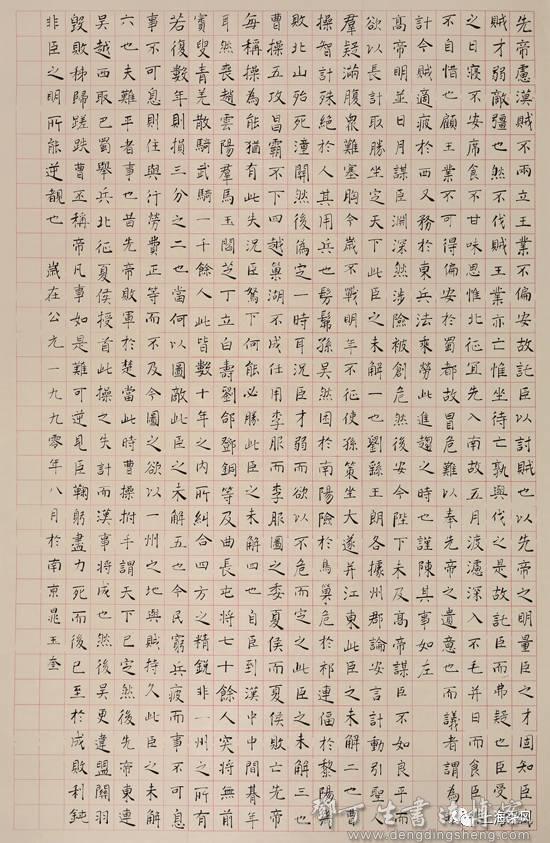 先帝慮漢賊不兩立王業不偏安故託臣以討賊也以先帝之明量臣之才固知臣伐
賊才弱敵彊也然不伐賊王業亦亡惟坐待亡孰與伐之是故託臣而弗疑也臣受命
之日寢不安席食不甘味思惟北征宜先入南故五月渡瀘深入不毛并日而食臣非
不自惜也顧王業不可得偏安於蜀都故冒危難以奉先帝之遺意也而議者謂為非
計今賊適疲於西又務於東兵法乘勞此進趨之時也謹陳其事如左
高帝明並日月謀臣淵深然涉險被創危然後安今陛下未及高帝謀臣不如良平而
欲以長計取勝坐定天下此臣之未解一也劉繇王朗各據州郡論安言計動引聖人
羣疑滿腹眾難塞胸今歲不戰明年不征使孫策坐大遂并江東此臣之未解二也曹
操智計殊絕於人其用兵也髣髴孫吳然困於南陽險於烏巢危於祁連偪於黎陽幾
敗北山殆死潼關然後偽定一時耳況臣才弱而欲以不危而定之此臣之未解三也
曹操五攻昌霸不下四越巢湖不成任用李服而李服圖之委夏侯而夏侯敗亡先帝
每稱操為能猶有此失況臣駑下何能必勝此臣之未解四也自臣到漢中中間朞年
耳然喪趙雲陽羣馬玉閻芝丁立白壽劉郃鄧銅等及曲長屯將七十餘人突將無前
賓叟青羌散騎武騎一千餘人此皆數十年之內所糾合四方之精銳非一州之所有
若復數年則損三分之二也當何以圖敵此臣之未解五也今民窮兵疲而事不可息
事不可息則住與行勞費正等而不及今圖之欲以一州之地與賊持久此臣之未解
六也夫難平者事也昔先帝敗軍於楚當此時曹操拊手謂天下已定然後先帝東連
吳越西取巴蜀舉兵北征夏侯授首此操之失計而漢事將成也然後吳更違盟關羽
毀敗秭歸蹉跌曹丕稱帝凡事如是難可逆見臣鞠躬盡力死而後已至於成敗利鈍
非臣之明所能逆覩也 歲在公元一九九零年八月於南京晁玉奎
鄧丁生書法博客
www.dengdingsheng.com